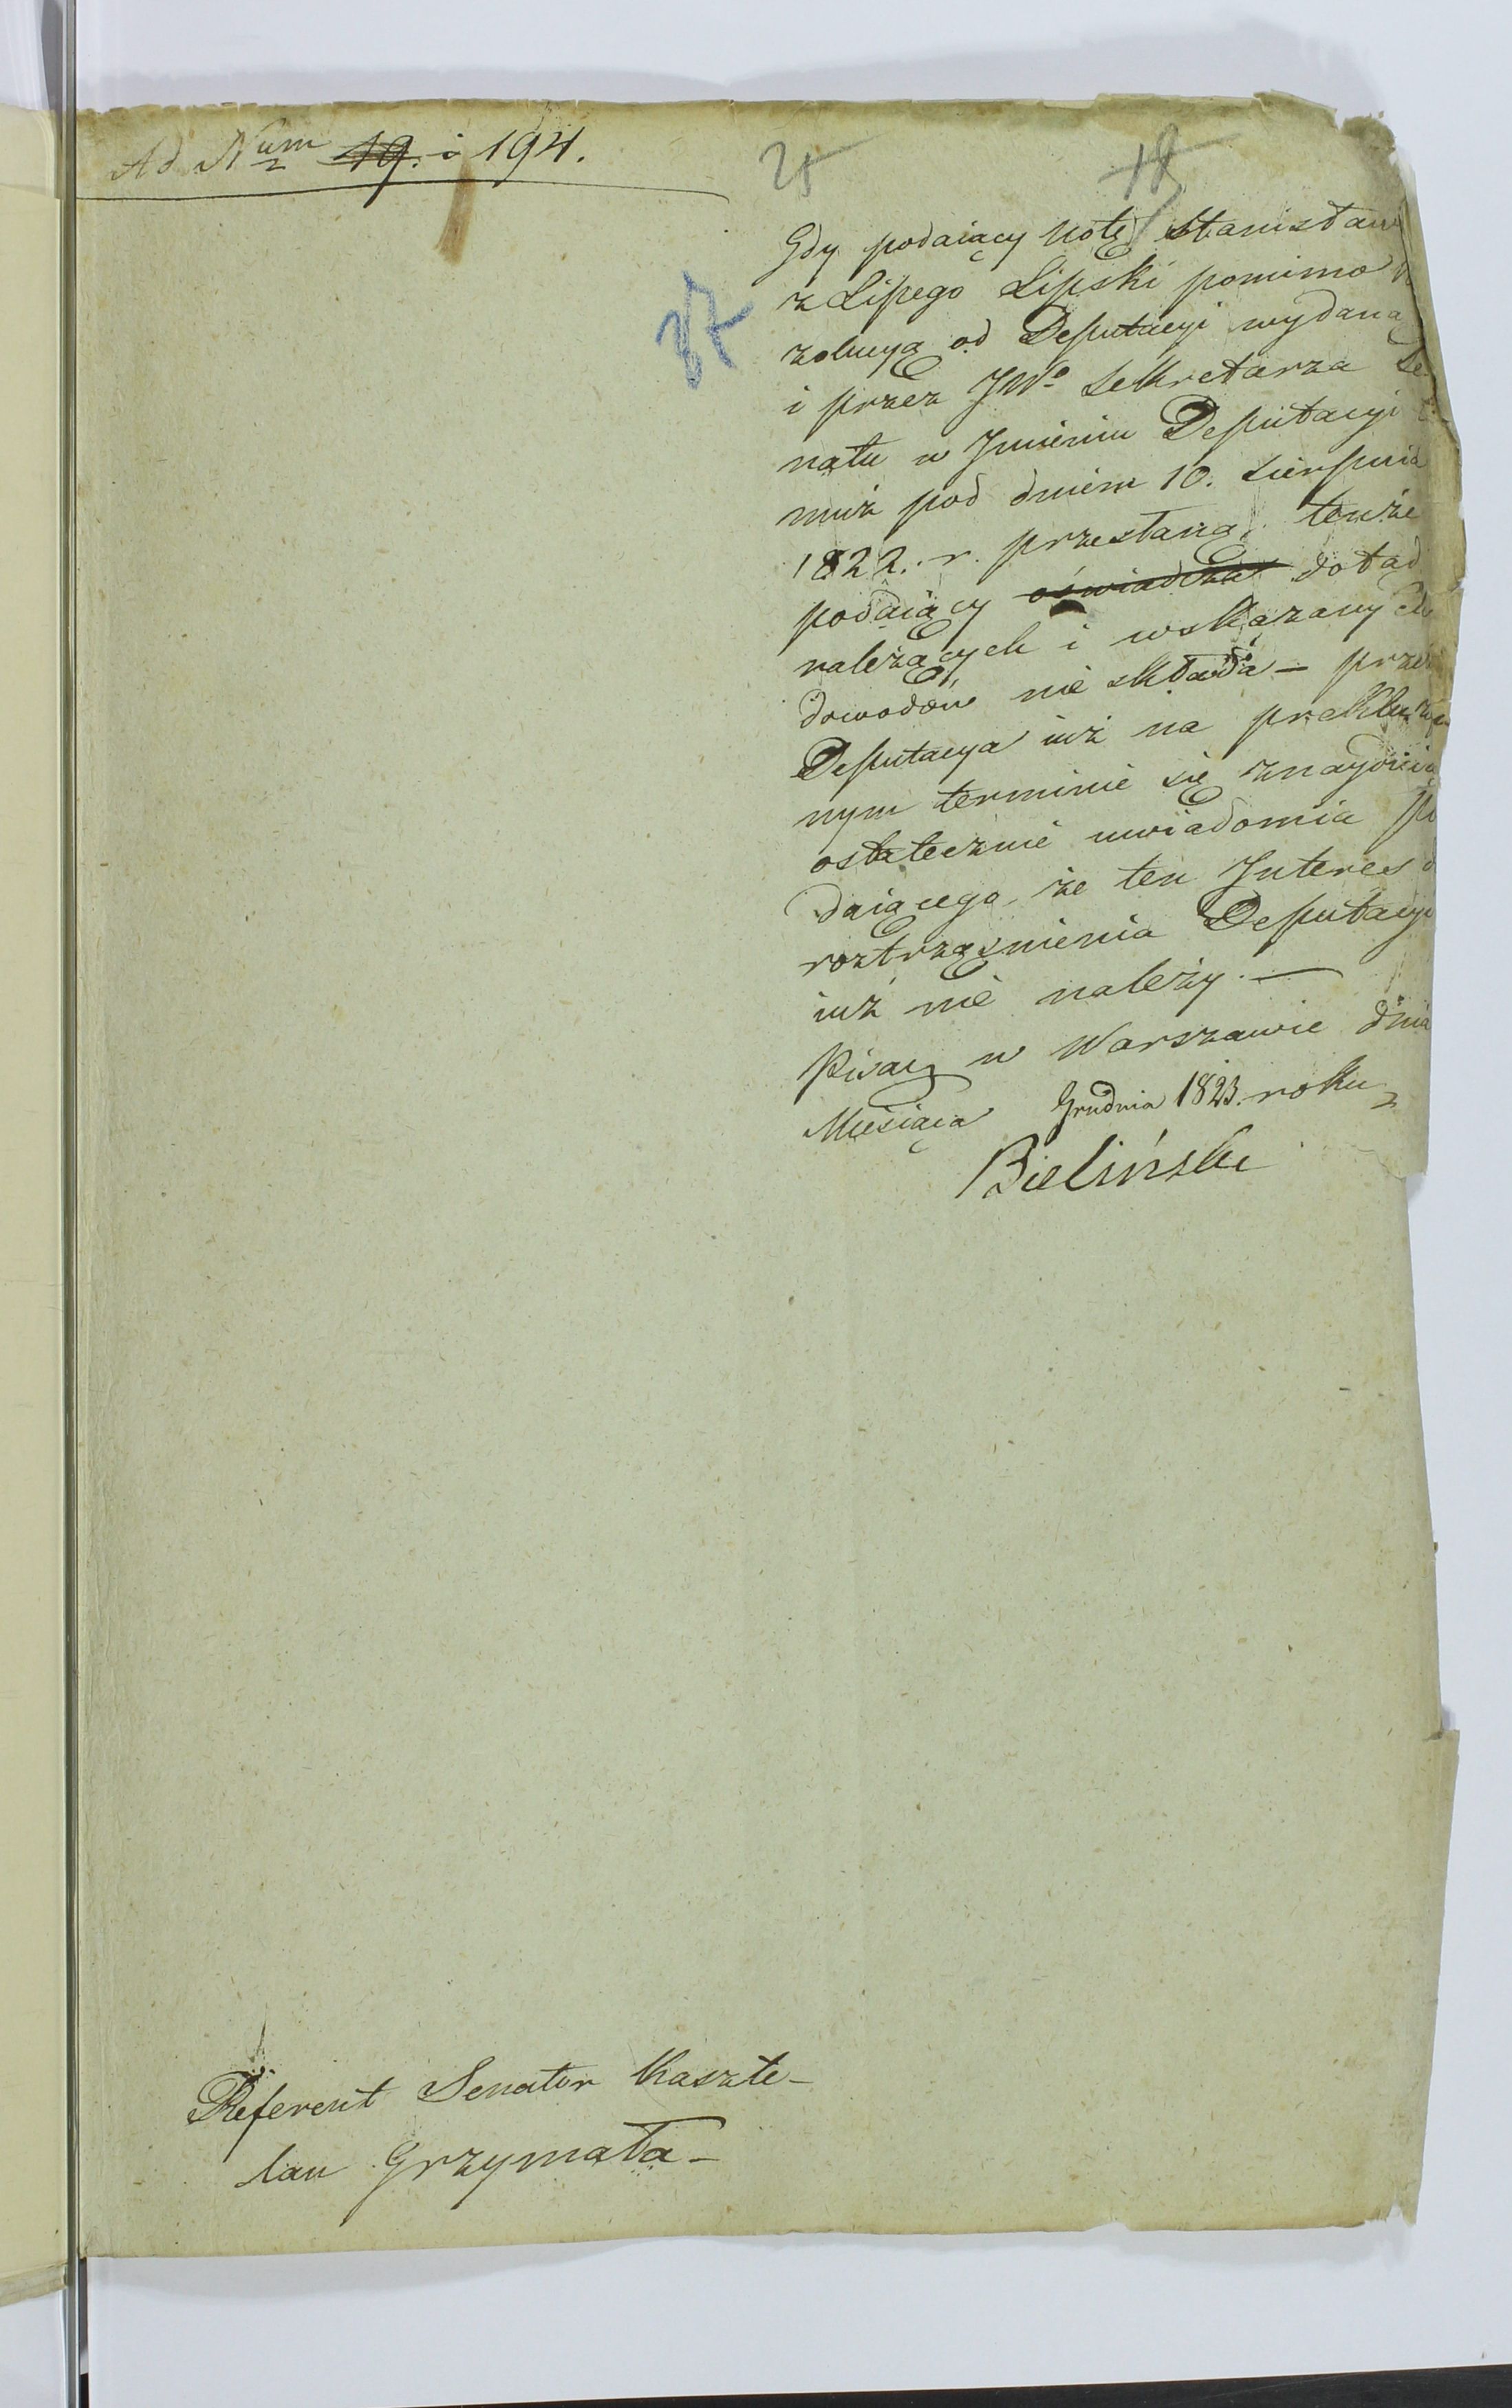 Ad N<sup>um</sup> 19. i 194.
25 18
37
Gdy podaiący notę Stanisław
z Lipego Lipski pomimo
zolucyą od Deputacyi wydaną
i przez JWo Sekretarza Se
natu w Jmieniu Deputacyi
muż pod dniem 10. Sierpnia
1822. r. przesłaną, tenże
podaiący oświadcza dotąd
należących i wskazanych
dowodów nie składa — prze
Deputacya iuż na prekluzyi
nym terminie się znayduiąc
ostatecznie uwiadomia po
daiącego że ten Jnteres d
roztrząsnienia Deputacyi
iuż nie należy. —
Pisać w Warszawie dnia
Miesiąca Grudnia 1823. roku
Bieliński
Referent Senator Kaszte-
lan Grzymała -